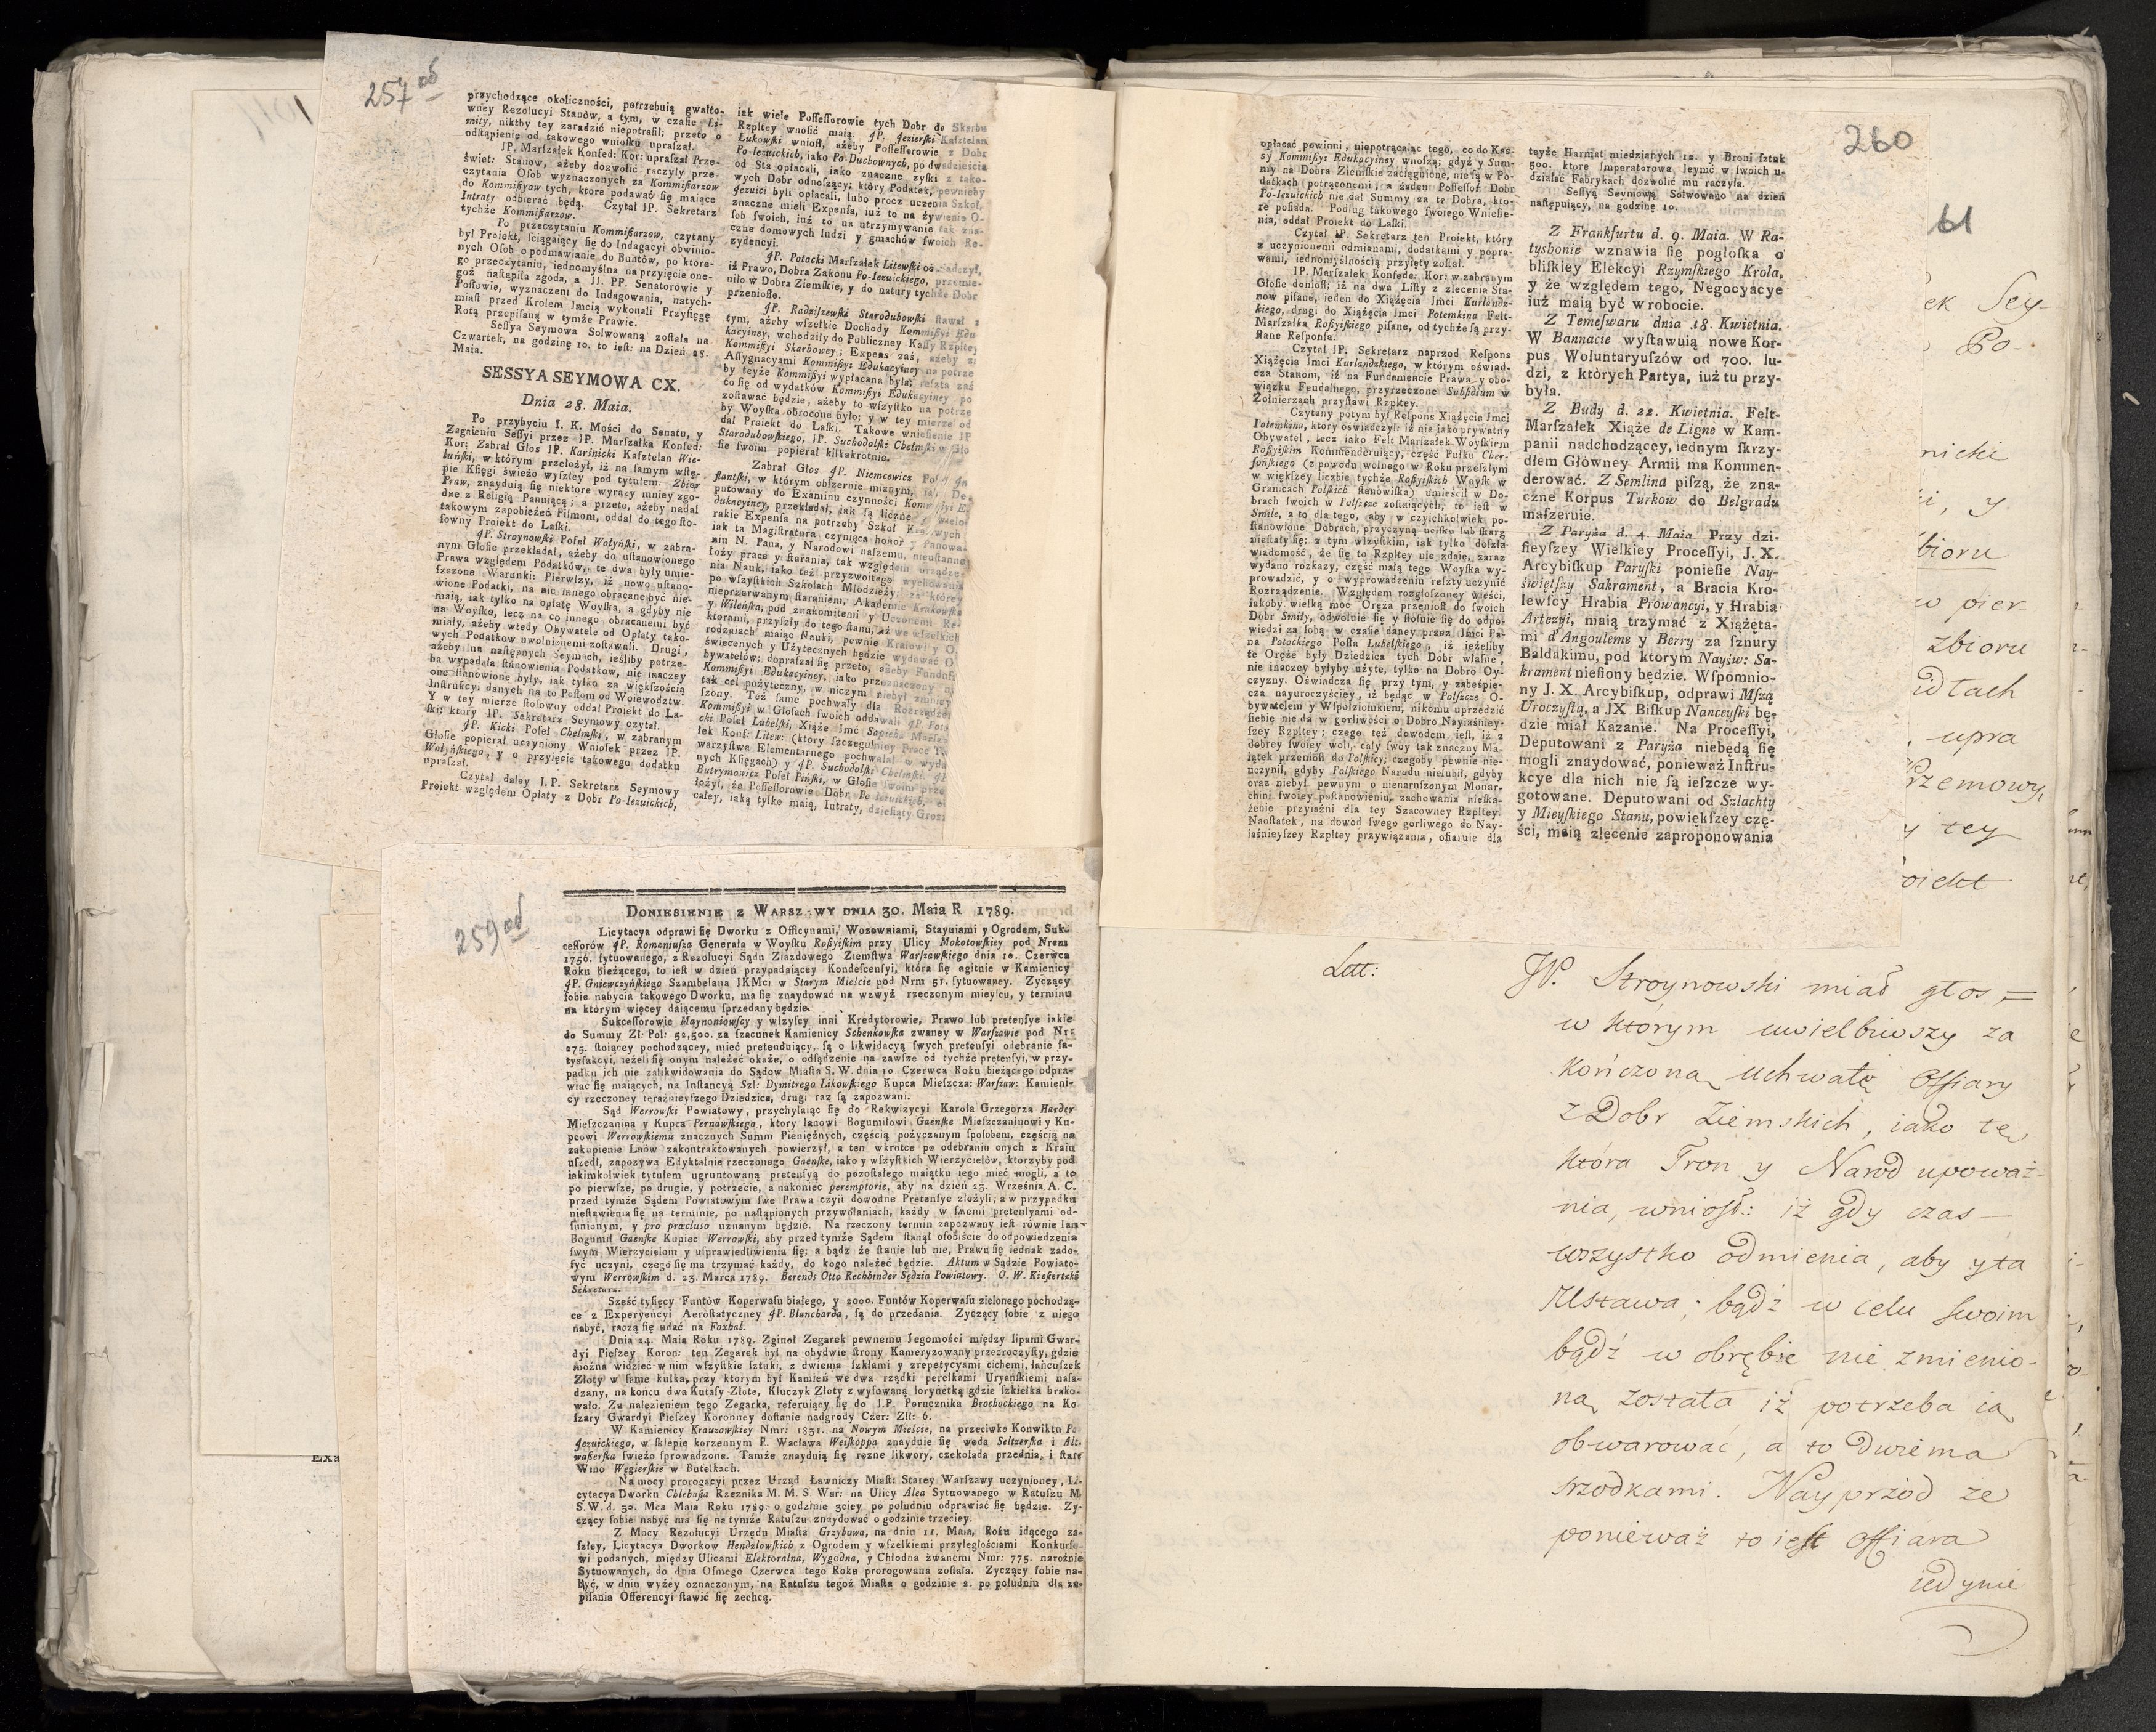 257 od
przychodzące okoliczności, potrzebuią gwałto-
wney Rezolucyi Stanów, a tym, w czaſie Li-
mity, niktby tey zaradzić niepotrafił; przeto o
odſtąpienie od takowego wnioſku upraſzał.
JP. Marſzałek Konfed: Kor: upraſzał Prze-
świet: Stanow, ażeby dozwolić raczyły prze-
czytania Oſob wyznaczonych za Kommiſſarzow
do Kommiſſyow tych, ktore podawać ſię maiące
Intraty odbierać będą. Czytał JP. Sekretarz
tychże Kommiſſarzow.
Po przeczytaniu Kommiſſarzow, czytany
był Proiekt, ſciągaiący ſię do Indagacyi obwinio-
nych Oſob o podmawianie do Buntów, po ktore-
go przeczytaniu, iednomyślna na przyięcie one-
goż naſtąpiła zgoda, a JJ. PP. Senatorowie y
Poſłowie, wyznaczeni do Indagowania, natych-
miaſt przed Krolem Jmcią wykonali Przyſięgę
Rotą przepiſaną w tymże Prawie.
Seſſya Seymowa Solwowaną zoſtała na
Czwartek, na godzinę 10. to ieſt: na Dzień 28.
Maia.
SESSYA SEYMOWA CX.
Dnia 28. Maia.
Po przybyciu J. K. Mości do Senatu, y
Zagaieniu Seſſyi przez JP. Marſzałka Konfed:
Kor: Zabrał Głos JP. Karśnicki Kaſztelan Wie-
luński, w którym przełożył, iż na ſamym wſtę-
pie Kſięgi świeżo wyſzłey pod tytułem: Zbior
Praw, znayduią ſię niektore wyrazy mniey zgo-
dne z Religią Panuiącą; a przeto, ażeby nadal
takowym zapobieżeć Piſmom, oddał do tego ſto-
ſowny Proiekt do Laſki.
JP. Stroynowſki Poſeł Wołyński, w zabra-
nym Głoſie przekładał, ażeby do uſtanowionego
Prawa względem Podatków, te dwa były umie-
ſzczone Warunki: Pierwſzy, iż nowo uſtano-
wione Podatki, na nic innego obracane być nie-
maią, iak tylko na opłatę Woyſka, a gdyby nie
na Woyſko, lecz na co innego obracanemi być
miały, ażeby wtedy Obywatele od Opłaty tako-
wych Podatkow uwolnionemi zoſtawali. Drugi,
ażeby na naſtępnych Seymach, ieśliby potrze-
ba wypadała ſtanowienia Podatkow, nie inaczey
one ſtanowione były, iak tylko za więkſzością
Inſtrukcyi danych na to Poſłom od Woiewodztw.
Y w tey mierze ſtoſowny oddał Proiekt do La-
ſki; ktory JP. Sekretarz Seymowy czytał.
JP. Kicki Poſeł Chełmſki, w zabranym
Głoſie popierał uczyniony Wnioſek przez JP.
Wołyńſkiego, y o przyięcie takowego dodatku
upraſzał.
Czytał daley J.P. Sekretarz Seymowy
Proiekt względem Opłaty z Dobr Po-Iezuickich,
iak wiele Poſſeſſorowie tych Dobr do Skarbu
Rzpltey wnoſić maią. JP. Jezierſki Kaſztelan
Łukowſki wnioſł, ażeby Poſſeſſorowie z Dobr
Po-Iezuickich, iako Po-Duchownych, po dwadzieścia
od Sta opłacali, iako znaczne zyſki z tako-
wych Dobr odnoſzący; który Podatek, pewnieby
Jezuici byli opłacali, lubo procz uczenia Szkoł,
znaczne mieli Expenſa, iuż to na żywienie O-
ſob ſwoich, iuż to na utrzymywanie tak zna-
czne domowych ludzi y gmachów ſwoich Re-
zydencyi.
JP. Potocki Marſzałek Litewſki oświadczył,
iż Prawo, Dobra Zakonu Po-Iezuickiego, przemie-
niło w Dobra Ziemſkie, y do natury tychże Dobr
przenioſło.
JP. Radziſzewſki Starodubowſki ſtawał z
tym, ażeby wſzelkie Dochody Kommiſſyi Edu-
kacyiney, wchodziły do Publiczney Kaſſy Rzpltey
Kommiſſyi Skarbowey; Expens zaś, ażeby za
Aſſygnacyami Kommiſſyi Edukacyiney na potrze-
by teyże Kommiſſyi wypłacana była; reſzta zaś
co ſię od wydatków Kommiſſyi Edukacyiney po
zoſtawać będzie, ażeby to wſzyſtko na potrze
by Woyſka obrocone było; y w tey mierze od
dał Proiekt do Laſki. Takowe wnieſienie JP
Starodubowſkiego, JP. Suchodolſki Chełmſki w Gło
ſie ſwoim popierał kilkakrotnie.
Zabrał Głos JP. Niemcewicz Poſeł In
flantſki, w którym obſzernie mianym, iak De-
putowany do Examinu czynności Kommiſſyi E-
dukacyiney, przekładał, iak ſą liczne y wielo
rakie Expenſa na potrzeby Szkoł Kraiowych
iak ta Magiſtratura czyniąca honor y Panowa-
niu N. Pana, y Narodowi naſzemu, nieuſtanne
łoży prace y ſtarania, tak względem urządze
nia Nauk, iako też przyzwoitego wychowania
po wſzyſtkich Szkołach Młodzieży; za którey
nieprzerwanym ſtaraniem, Akademie Krakowſka
y Wileńſka, pod znakomitemi y Uczonemi Re-
ktorami, przyſzły do tego ſtanu, iż we wſzelkich
rodzaiach maiąc Nauki, pewnie Kraiowi y O-
świeconych y Użytecznych będzie wydawać O-
bywatelów; dopraſzał ſię przeto, ażeby Funduſz
Kommiſſyi Edukacyiney, iako przeznaczony na
tak cel pożyteczny, w niczym niebył zmniey
ſzony. Też ſame pochwały dla Rozrządzeń
Kommiſſyi w Głoſach ſwoich oddawali JP. Poto
cki Poſeł Lubelſki, Xiąże Jmć Sapieha Marſza
łek Konf: Litew: (ktory ſzczegulniey Prace To
warzyſtwa Elementarnego pochwalał w wyda
nych Kſięgach) y JP. Suchodolſki Chełmſki. JP
Butrymowicz Poſeł Piński, w Głoſie ſwoim prze
łożył, że Poſſeſſorowie Dobr Po Iezuickich, o
całey, iaką tylko maią, Intraty, dzieſiąty Grosz
259 od
DONIESIENIE Z WARSZAWY DNIA 30. Maia R 1789.
Licytacya odprawi ſię Dworku z Officynami, Wozowniami, Stayniami y Ogrodem, Suk-
ceſſorów JP. Romaniuſza Generała w Woyſku Roſſyiſkim przy Ulicy Mokotowſkiey pod Nrem
1756. ſytuowanego, z Rezolucyi Sądu Ziazdowego Ziemſtwa Warſzawſkiego dnia 10. Czerwca
Roku bieżącego, to ieſt w dzień przypadaiącey Kondeſcenſyi, która ſię agituie w Kamienicy
JP. Gniewczyńſkiego Szambelana JKMci w Starym Mieście pod Nrm 51. ſytuowaney. Zyczący
ſobie nabycia takowego Dworku, ma ſię znaydować na wzwyż rzeczonym mieyſcu, y terminu
na którym więcey daiącemu ſprzedany będzie.
Sukceſſorowie Maynoniowſcy y wſzyſcy inni Kredytorowie, Prawo lub pretenſye iakie
do Summy Zł: Pol: 52,500. za ſzacunek Kamienicy Schenkowſka zwaney w Warſzawie pod Nr:
275. ſtoiącey pochodzącey, mieć pretenduiący, ſą o likwidacyą ſwych pretenſyi odebranie ſa-
tysfakcyi, ieżeli ſię onym należeć okaże, o odſądzenie na zawſze od tychże pretenſyi, w przy-
padku ich nie zalikwidowania do Sądow Miaſta S. W. dnia 10 Czerwca Roku bieżącego odpra-
wiać ſię maiących, na Inſtancyą Szl: Dymitrego Likowſkiego Kupca Mieſzcza: Warſzaw: Kamieni-
cy rzeczoney teraźnieyſzego Dziedzica, drugi raz ſą zapozwani.
Sąd Werrowſki Powiatowy, przychylaiąc ſię do Rekwizycyi Karola Grzegorza Harder
Mieſzczanina y Kupca Pernawſkiego, ktory Ianowi Bogumiłowi Gaenſke Mieſzczaninowi y Ku-
pcowi Werrowſkiemu znacznych Summ Pieniężnych, częścią pożyczanym ſpoſobem, częścią na
zakupienie Lnów zakontraktowanych powierzył, a ten wkrotce po odebraniu onych z Kraiu
uſzedł, zapozywa Edyktalnie rzeczonego Gaenſke, iako y wſzyſtkich Wierzycielów, ktorzyby pod
iakimkolwiek tytułem ugruntowaną pretenſyą do pozoſtałego maiątku iego mieć mogli, a to
po pierwſze, po drugie, y potrzecie, a nakoniec peremptorie, aby na dzień 23. Września A. C.
przed tymże Sądem Powiatowym ſwe Prawa czyli dowodne Pretenſye złożyli; a w przypadku
nieſtawienia ſię na terminie, po naſtąpionych przywołaniach, każdy w ſwemi pretenſyami od-
ſunionym, y pro præcluſo uznanym będzie. Na rzeczony termin zapozwany ieſt równie Jan
Bogumił Gaenſke Kupiec Werrowſki, aby przed tymże Sądem ſtanął oſobiście do odpowiedzenia
ſwym Wierzycielom y uſprawiedliwienia ſię; a bądź że ſtanie lub nie, Prawu ſię iednak zado-
ſyć uczyni, czego ſię ma trzymać każdy, do kogo należeć będzie. Aktum w Sądzie Powiato-
wym Werrowſkim d. 23. Marca 1789. Berends Otto Rechbinder Sędzia Powiatowy. O. W. Kieſertzki
Sekretarz.
Sześć tyſięcy Funtów Koperwaſu białego, y 2000. Funtów Koperwaſu zielonego pochodzą-
ce z Experyencyi Aeroſtatyczney JP. Blancharda, ſą do przedania. Zyczący ſobie z niego
nabyć, raczą ſię udać na Foxhal.
Dnia 24. Maia Roku 1789. Zginoł Zegarek pewnemu Jegomości między lipami Gwar-
dyi Pieſzey Koron: ten Zegarek był na obydwie ſtrony Kameryzowany przezroczyſty, gdzie
można widzieć w nim wſzyſtkie ſztuki, z dwiema ſzkłami y zrepetycyami cichemi, łańcuſzek
Złoty w ſame kulka, przy ktorym był Kamień we dwa rządki perełkami Uryańſkiemi naſa-
dzany, na końcu dwa Kutaſy Złote, Kluczyk Złoty z wyſowaną lorynetką gdzie ſzkiełka brako-
wało. Za nalezieniem tego Zegarka, referuiący ſię do J.P. Porucznika Brochockiego na Ko
ſzary Gwardyi Pieſzey Koronney doſtanie nadgrody Czer: Złł: 6.
W Kamienicy Krauzowſkiey Nmr: 1831. na Nowym Mieście, na przeciwko Konwiktu Po
Jezuickiego, w ſklepie korzennym P. Wacława Weiſkoppa znayduie ſię woda Seltzerſka i Alt-
waſſerſka świeżo ſprowadzone. Tamże znayduią ſię rozne likwory, czekolada przednia, i ſtare
Wino Węgierſkie w Butelkach.
Na mocy prorogacyi przez Urząd Ławniczy Miaſt: Starey Warſzawy uczynioney, Li-
cytacya Dworku Chlebaſia Rzeznika M. M. S. War: na Ulicy Alea Sytuowanego w Ratuſzu M.
S. W. d. 30. Mca Maia Roku 1789. o godzinie 3ciey po południu odprawiać ſię będzie. Zy-
czący ſobie nabyć ma ſię na tymże Ratuſzu znaydować o godzinie trzeciey.
Z Mocy Rezolucyi Urzędu Miaſta Grzybowa, na dniu 11. Maia, Roku idącego za-
ſzłey, Licytacya Dworkow Hendzlowſkich z Ogrodem y wſzelkiemi przyległościami Konkurſo-
wi podanych, między Ulicami Elektoralna, Wygodna, y Chłodna zwanemi Nmr: 775. narożnie
Sytuowanych, do dnia Oſmego Czerwca tego Roku prorogowana zoſtała. Zyczący ſobie na-
być, w dniu wyżey oznaczonym, na Ratuſzu tegoż Miaſta o godzinie 2. po południu dla za-
piſania Offerencyi ſtawić ſię zechcą.
Exa
260
opłacać powinni, niepotrącaiąc tego, co do Kas-
sy Kommiſſyi Edukacyiney wnoſzą; gdyż y Sum-
my na Dobra Ziemſkie zaciągnione, nie ſą w Po-
datkach potrąconemi; a żaden Poſſeſſor Dobr
Po-Iezuickich nie dał Summy za te Dobra, kto-
re poſiada. Podług takowego ſwoiego Wnieſie-
nia, oddał Proiekt do Laſki.
Czytał JP. Sekretarz ten Proiekt, który
z uczynionemi odmianami, dodatkami y popra-
wami, iednomyślnością przyięty zoſtał.
JP. Marſzałek Konfede: Kor: w zabranym
Głoſie donioſł, iż na dwa Liſty z zlecenia Sta-
now piſane, ieden do Xiążęcia Jmci Kurlandz-
kiego, drugi do Xiążęcia Jmci Potemkina Felt-
Marſzałka Roſſyiſkiego piſane, od tychże ſą przy-
ſłane Reſponſa.
Czytał JP. Sekretarz naprzod Reſpons
Xiążęcia Jmci Kurlandzkiego, w którym oświad-
cza Stanom, iż na Fundamencie Prawa y obo-
wiązku Feudalnego, przyrzeczone Subſidium w
Żołnierzach przyſtawi Rzpltey.
Czytany potym był Reſpons Xiążęcia Jmci
Potemkina, ktory oświadczył: iż nie iako prywatny
Obywatel, lecz iako Felt Marſzałek Woyſkiem
Roſſyiſkim Kommenderuiący, część Pułku Cher-
ſońſkiego (z powodu wolnego w Roku przeſzłym
w więkſzey liczbie tychże Roſſyiſkich Woyſk w
Granicach Polſkich ſtanowiſka) umieścił w Do-
brach ſwoich w Polſzcze zoſtaiących, to ieſt w
Smile, a to dla tego, aby w czyichkolwiek po-
ſtanowione Dobrach, przyczyną uciſku lub ſkarg
nieſtały ſię; z tym wſzyſtkim, iak tylko doſzła
wiadomość, że ſię to Rzpltey nie zdaie, zaraz
wydano rozkazy, część małą tego Woyſka wy-
prowadzić, y o wyprowadzeniu reſzty uczynić
Rozrządzenie. Względem rozgłoſzoney wieści,
iakoby wielką moc Oręża przenioſł do ſwoich
Dobr Smiły, odwołuie ſię y ſtoſuie ſię do odpo-
wiedzi za ſobą w czaſie daney przez Jmci Pa-
na Potockiego Poſła Lubelſkiego, iż ieżeliby
te Oręże były Dziedzica tych Dobr właſne,
nie inaczey byłyby użyte, tylko na Dobro Oy-
czyzny. Oświadcza ſię przy tym, y zabeśpie-
cza nayuroczyściey, iż będąc w Polſzcze O-
bywatelem y Wſpołziomkiem, nikomu uprzedzić
ſiebie nie da w gorliwości o Dobro Nayiaśniey-
ſzey Rzpltey; czego też dowodem ieſt, iż z
dobrey ſwoiey woli, cały ſwoy tak znaczny Ma-
iątek przenioſł do Polſkiey; czegoby pewnie nie-
uczynił, gdyby Polſkiego Narodu nielubił, gdyby
oraz niebył pewnym o nienaruſzonym Monar-
chini ſwoiey poſtanowieniu, zachowania nieſka-
żenie przyiaźni dla tey Szacowney Rzpltey.
Naoſtatek, na dowod ſwego gorliwego do Nay-
iaśnieyſzey Rzpltey przywiązania, ofiaruie dla
teyże Harmat miedzianych 12. y Broni ſztuk
500. ktore Imperatorowa Jeymć w ſwoich u-
działać Fabrykach dozwolić mu raczyła.
Seſſyą Seymową Solwowano na dzień
naſtępuiący, na godzinę 10.
Z Frankfurtu d. 9. Maia. W Ra-
tysbonie wznawia ſię pogłoſka o
bliſkiey Elekcyi Rzymſkiego Krola,
y że względem tego, Negocyacye
iuż maią być w robocie.
Z Temeſwaru dnia 18. Kwietnia.
W Bannacie wyſtawuią nowe Kor-
pus Woluntaryuſzów od 700. lu-
dzi, z których Partya, iuż tu przy-
była.
Z Budy d. 22. Kwietnia. Felt-
Marſzałek Xiąże de Ligne w Kam-
panii nadchodzącey, iednym ſkrzy-
dłem Główney Armii ma Kommen-
derować. Z Semlina piſzą, że zna-
czne Korpus Turkow do Belgradu
maſzeruie.
Z Paryża d. 4. Maia Przy dzi-
ſieyſzey Wielkiey Proceſſyi, J. X.
Arcybiſkup Paryſki ponieſie Nay-
świętſzy Sakrament, a Bracia Kro-
lewſcy Hrabia Prowancyi, y Hrabia
Artezyi, maią trzymać z Xiążęta-
mi d'Angouleme y Berry za ſznury
Baldakimu, pod ktorym Nayśw: Sa-
krament nieſiony będzie. Wſpomnio-
ny J. X. Arcybiſkup, odprawi Mſzą
Uroczyſtą, a JX Biſkup Nanceyſki bę-
dzie miał Kazanie. Na Proceſſyi,
Deputowani z Paryża niebędą ſię
mogli znaydować, ponieważ Inſtru-
kcye dla nich nie ſą ieſzcze wy-
gotowane. Deputowani od Szlachty
y Mieyſkiego Stanu, powiękſzey czę-
ści, maią zlecenie zaproponowania
61
ek Sey-
Po-
nicki
i, y
bioru
w pier
zbioru
dłach
upra
Przemowy,
y tey
oiekt
Litt:
JP. Stroynowski miał głos =
w którym uwielbiwszy za
kończoną Uchwałę Offiary
z Dobr Ziemskich, iako tę
która Tron y Narod upoważ-
nia, wniosł: iż gdy czas —
wszystko odmienia, aby y ta
Ustawa, bądź w celu swoim
bądź w obrębie nie zmienio-
ną została iż potrzeba ią
obwarować, a to dwiema
srzodkami. Nayprzód że
ponieważ to iest Offiara
iedynie